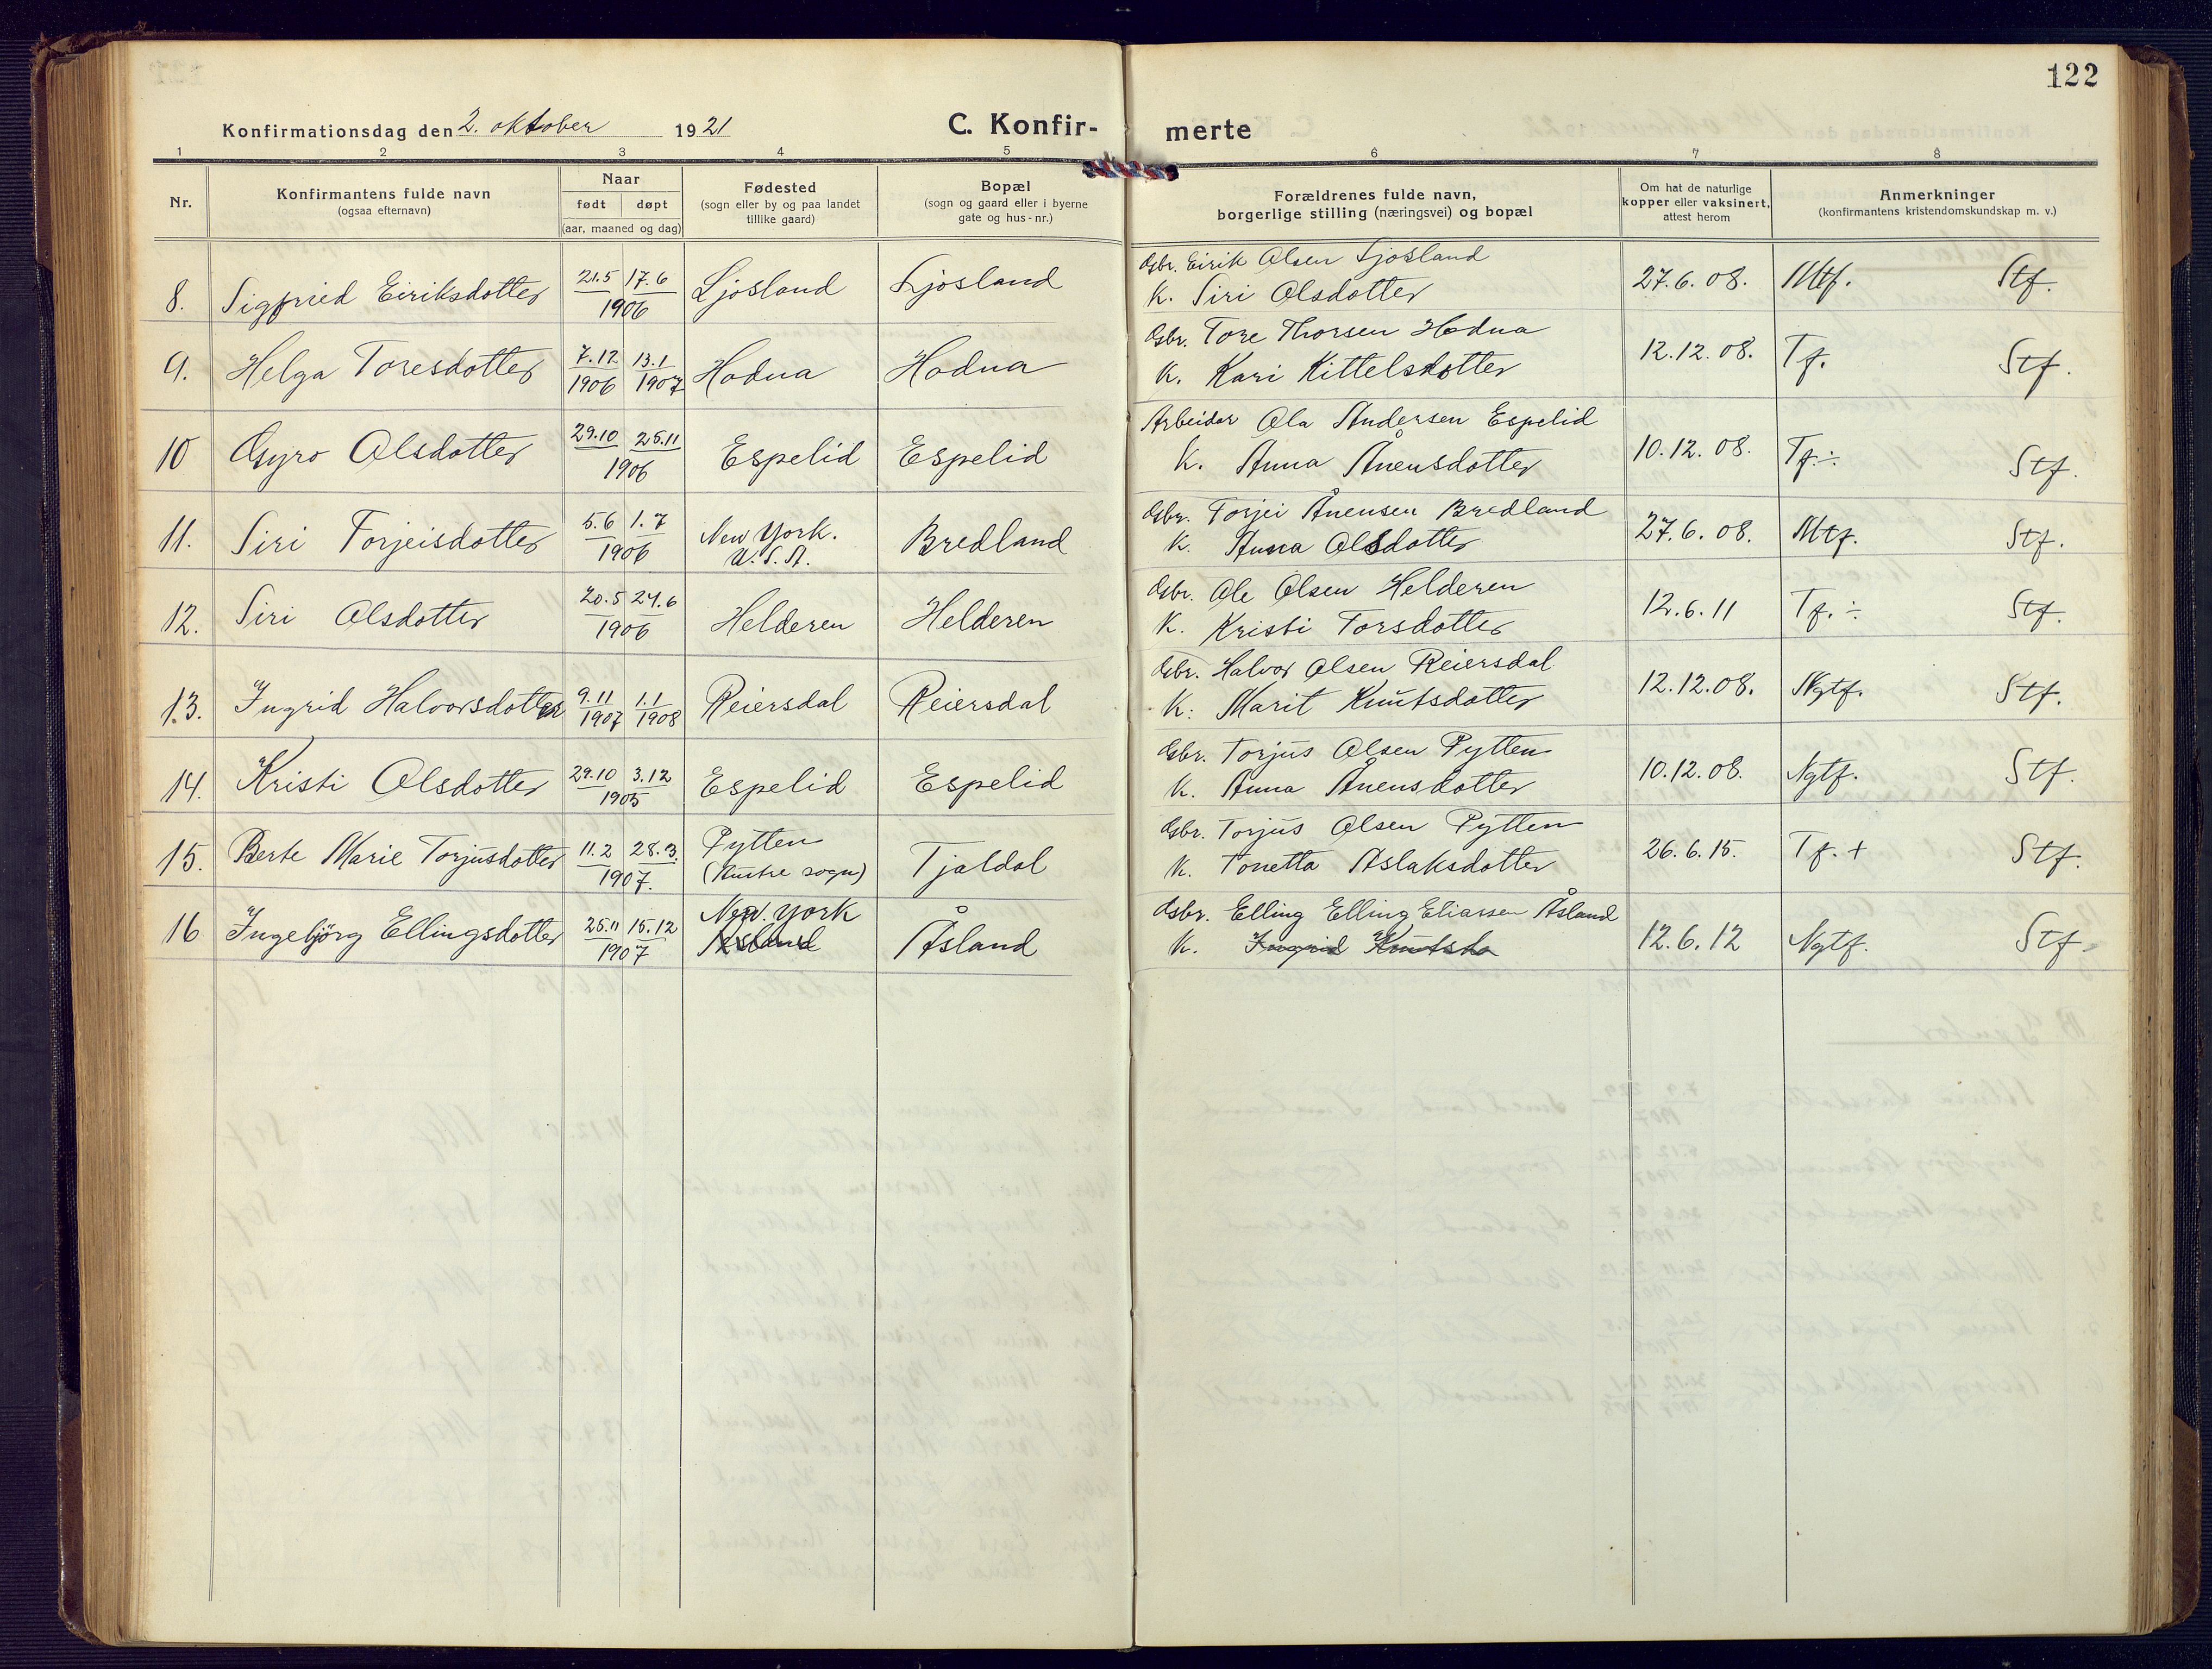 122
Konfirmationsdag den 2. oktober 1921
C. Konfir- merte
1 2 3 4 5 6 7 8
Nr.
Konfirmantens fulde navn
(ogsaa efternavn)
Naar
født døpt
(aar, maaned og dag)
Fødested
(sogn eller by og paa landet
tillike gaard)
Bopæl
(sogn og gaard eller i byerne
gate og hus-nr.)
Forældrenes fulde navn,
borgerlige stilling (næringsvei) og bopæl
Om hat de naturlige
kopper eller vaksinert,
attest herom
Anmerkninger
(konfirmantens kristendomskundskap m. v.)
8. Sigfried Eiriksdotter 21.5 17.6 1906 Ljosland Ljosland
Gbr. Eirik Olsen Ljosland
K. Siri Olsdotter 27.6.08. Mtf. Stf.
9. Helga Toresdotter 7.12 1906 13.1 1907 Hodna Hodna
Gbr. Tore Thorsen Hodna
K. Kari Kittelsdotter 12.12.08. Tf. Stf.
10 Gyro Olsdotter 29.10 25.11 1906 Espelid Espelid
Arbeider Ola Andersen Espelid
K. Anna Ånensdotter 10.12.08. Tf.÷ Stf.
11. Siri Torjeisdotter 5.6 1.7 1906 New York. U.S.A. Bredland
Gbr. Torjei Ånensen Bredland
K. Anna Olsdotter 27.6.08. Mtf. Stf.
12. Siri Olsdotter 20.5 24.6 1906 Helderen Helderen
Gbr. Ole Olsen Helderen
K. Kristi Torsdotter 12.6.11 Tf.÷ Stf.
13. Ingrid Halvorsdotter 9.11 1907 1.1 1908 Reiersdal Reiersdal
Gbr. Halvor Olsen Reiersdal
K. Marit Knutsdotter 12.12.08. Ngtf. Stf.
14. Kristi Olsdotter 29.10 3.12 1905 Espelid Espelid
Gbr. Torjus Olsen Pytten
K. Anna Ånensdotter 10.12.08. Ngtf. Stf.
15. Berte Marie Torjusdotter 11.2 28.3. 1907. Pytten (Austre sogn) Tjaldal
Gbr. Torjus Olsen Pytten
K. Tonetta Aslaksdotter 26.6.15. Tf.+ Stf.
16 Ingebjörg Ellingsdotter 25.11 15.12 1907 New. York Åsland Åsland
Gbr. Elling Elling Eliassen Åsland
K. Ingrid Knutsdo 12.6.12 Ngtf. Stf.